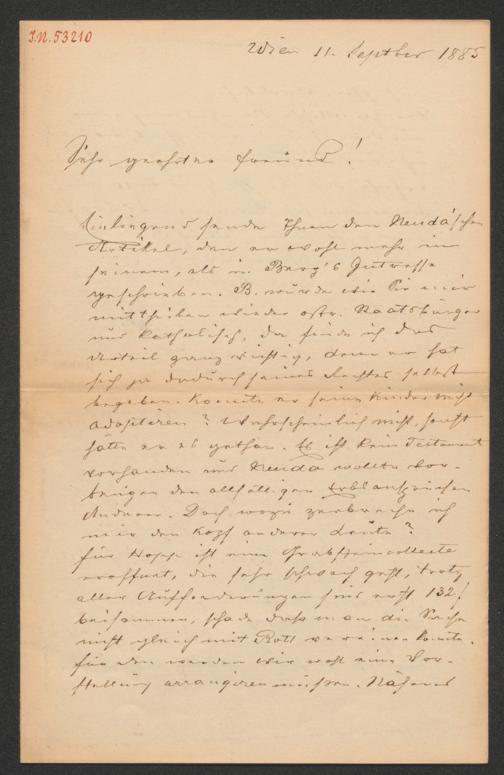 I.N. 53210
Wien 11. Septber 1885
Sehr geehrter Freund!
Einliegend sende Ihnen den Neudá'schen
Artikel, den er wohl mehr in
seinem, als in Berg's Intresse
geschrieben. B. würde wie Sie mir
mittheilen wieder östr. Staatsbürger
und katholisch, da finde ich das
Urteil ganz richtig, denn er hat
sich ja dadurch seines Rechtes selbst
begeben. Konnte er seine Kinder nicht
adoptiren? Wahrscheinlich nicht, sonst
hätte er es gethan. Es ist kein Testament
vorhanden und Neuda wollte vor-
beugen den allfälligen Erbsansprüchen
Anderer. Doch wozu zerbreche ich
mir den Kopf anderer Leute?
Für Hopp ist eine Grabsteincollecte
eröffnet, die sehr schwach geht, trotz
aller Aufforderungen sind erst 132 f
beisammen, schade dass man die Sache
nicht gleich mit Rott vereinen konnte.
Für den werden wir wohl eine Vor-
stellung arrangiren müssen. Näheres